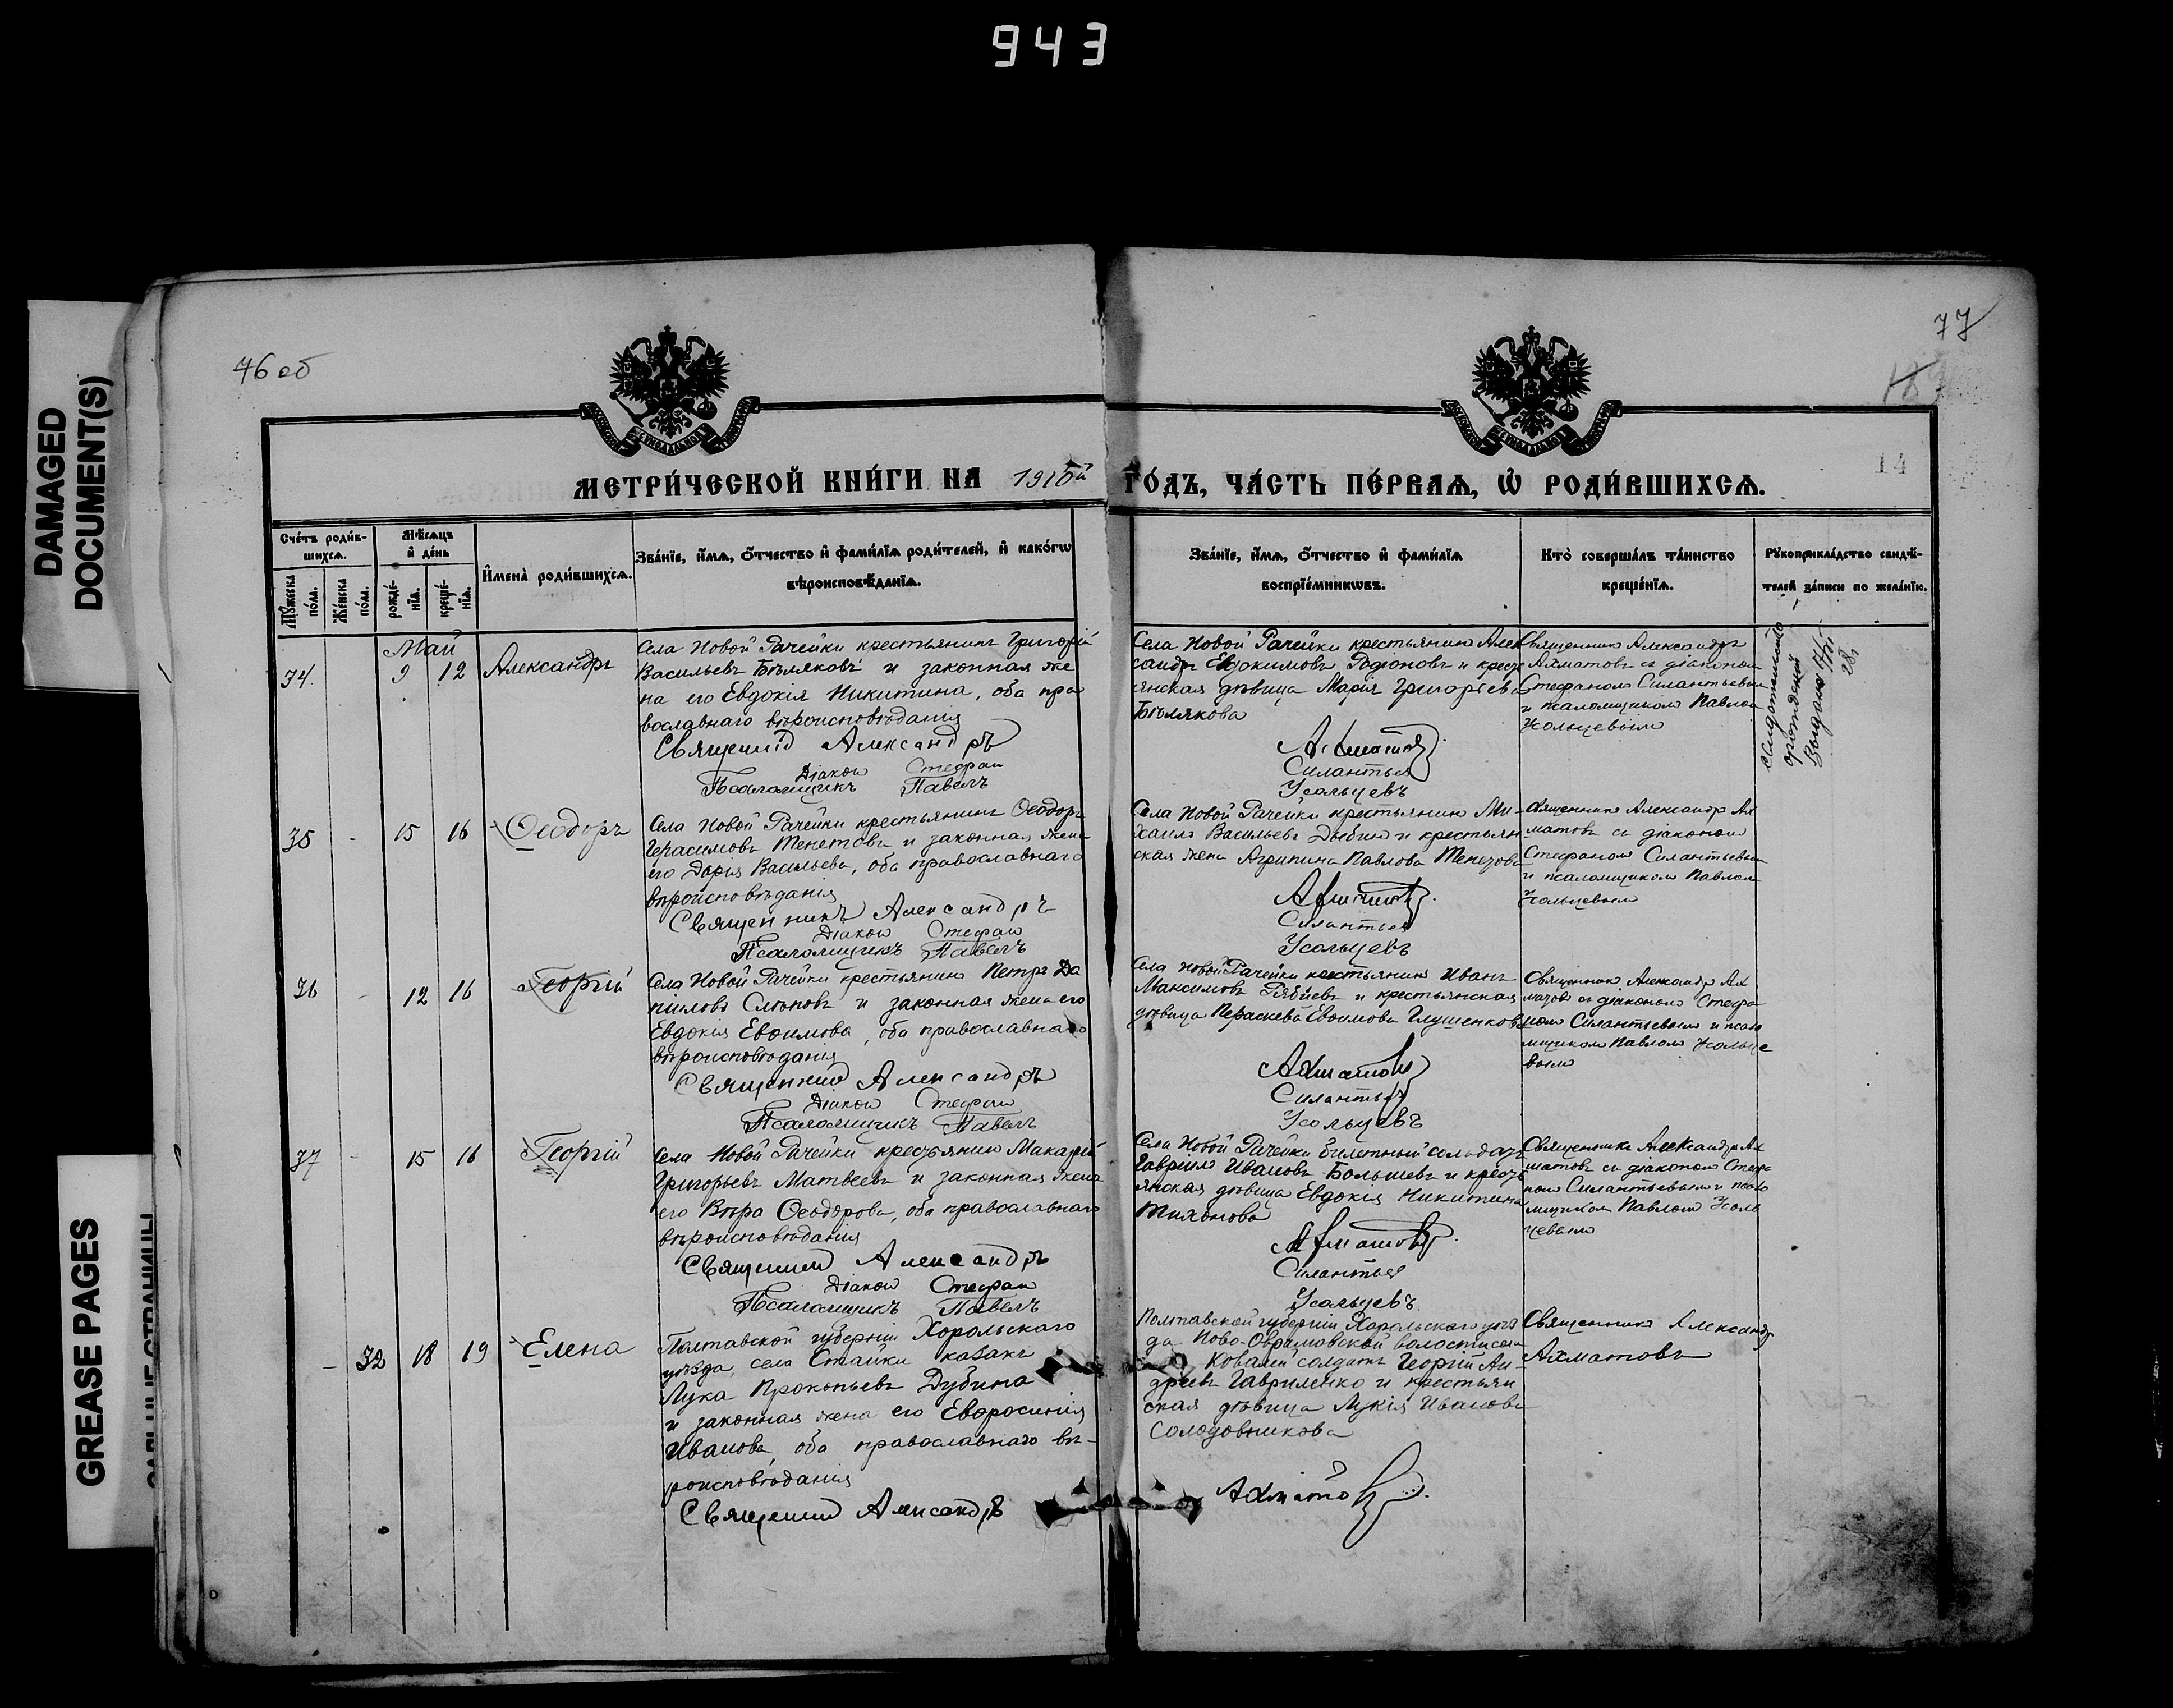 943
DAMAGED
DOCUMENT(S)
GREASE PAGES
76 об
77
14
МЕТРИ́ЧЕСКОЙ КНИ́ГИ НА 1910й ГО́ДЪ, ЧА́СТЬ ПЕ́РВАѦ, Ѡ РОДИ́ВШИХСѦ.
Сче́тъ роди́в-
шихсѧ.
Мꙋжеска по́ла.
Же́нска по́ла.
Мѣ́сѧцъ
и де́нь
рожде́-
нїѧ.
креще́-
нїѧ.
Имена̀ роди́вшихсѧ.
Зва́нїе, и́мѧ, о́тчество и фами́лїѧ роди́телей, и како́гѡ
вѣроисповѣ́данїѧ.
Зва́нїе, и́мѧ, о́тчество и фами́лїѧ
воспрїе́мникѡвъ.
Кто̀ соверша́лъ та́инство
креще́нїѧ.
Рꙋкоприкла́дство свидѣ́-
телей за́писи по жела́нїю.
Май
34. 9 12 Александръ
Села Новой Рачейки крестьянинъ Григорій
Васильевъ Бѣляковъ и законная же
на его Евдокія Никитина, оба пра
вославнаго вѣроисповѣданія
Священникъ Александръ
Діаконъ Стефанъ
Псаломщикъ Павелъ
Села Новой Рачейки крестьянинъ Алек
сандръ Евдокимовъ Родіоновъ и крест
янская дѣвица Марія Григорьева
Бѣлякова
Ахматовъ
Силантьевъ
Усольцевъ
Священникъ Александръ
Ахматовъ съ діакономъ
Стефаномъ Силантьевым
и псаломщикомъ Павлом
Усольцевымъ
35 - 15 16 Ѳеодоръ
Села Новой Рачейки крестьянинъ Ѳеодоръ
Герасимовъ Тенетовъ и законная жена
его Дарія Васильева, оба православнаго
вѣроисповѣданія
Священникъ Александръ
Діаконъ Стефанъ
Псаломщикъ Павелъ
Села Новой Рачейки крестьянинъ Ми-
хаилъ Васильевъ и крестьян
ская жена Агрипина Павлова
Ахматовъ
Силантьевъ
Усольцевъ
Священникъ Александръ Ах
матовъ съ діакономъ
Стефаномъ Силантьевым
и псаломщикомъ Павлом
Усольцевымъ
36 - 12 16 Георгій
Села Новой Рачейки крестьянинъ Петръ Да
ниловъ Слѣповъ и законная жена его
Евдокія Евѳимова, оба православнаго
вѣроисповѣданія
Священникъ Александръ
Діаконъ Стефанъ
Псаломщикъ Павелъ
Села Новой Рачейки крестьянинъ Иванъ
Максимовъ и крестьянская
дѣвица Параскева Евѳимова Глушенкова
Ахматовъ
Силантьевъ
Усольцевъ
Священникъ Александръ Ах
матовъ съ діакономъ Стефа
номъ Силантьевымъ и псало
мщикомъ Павломъ Усольце
вымъ
37 - 15 16 Георгій
Села Новой Рачейки крестьянинъ Макарій
Григорьевъ Матвеевъ и законная жена
его Вѣра Ѳеодорова, оба православнаго
вѣроисповѣданія
Священникъ Александръ
Діаконъ Стефанъ
Псаломщикъ Павелъ
Села Новой Рачейки билетный солдатъ
Гавріилъ Ивановъ Болышевъ и крест
янская дѣвица Евдокія Никитина
Тихонова
Ахматовъ
Силантьевъ
Усольцевъ
Священникъ Александръ Ах
матовъ съ діакономъ Стефа
номъ Силантьевымъ и псало
мщикомъ Павломъ Усоль
цевымъ
- 32 18 19 Елена
Полтавской губерніи Хорольскаго
уѣзда, села Стайки казакъ
Лука Прокопьевъ Дубина
и законная жена его Евфросинія
Иванова, оба православнаго вѣ-
роисповѣданія
Священникъ Александръ
Полтавской губерніи Хорольскаго уѣз
да Ново-Аврамовской волости села
Ковали солдатъ Георгій Ан-
дреевъ Гавриленко и крестьян
ская дѣвица Лукія Иванова
Солодовникова
Ахматовъ
Священникъ Александръ
Ахматовъ